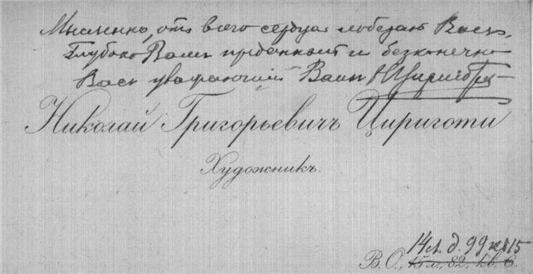 Мысленно, отъ всего сердца лобзаю Васъ.
Глубоко Вамъ преданный и безконечно
Васъ уважающій Вашъ
Николай Григорьевичъ Цириготи
Художникъ.
14 л. д. 99 кв 15
В.О., 15 л., 82, кв. 6.